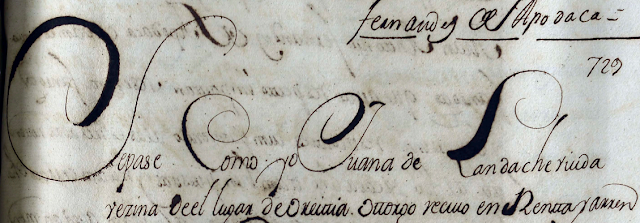 Fernandez de Apodaca =
729
Sepase Como yo Juana de Landache viuda
vezina de el lugar de Oreitia. Ottorgo reciuo en Rentta y arren